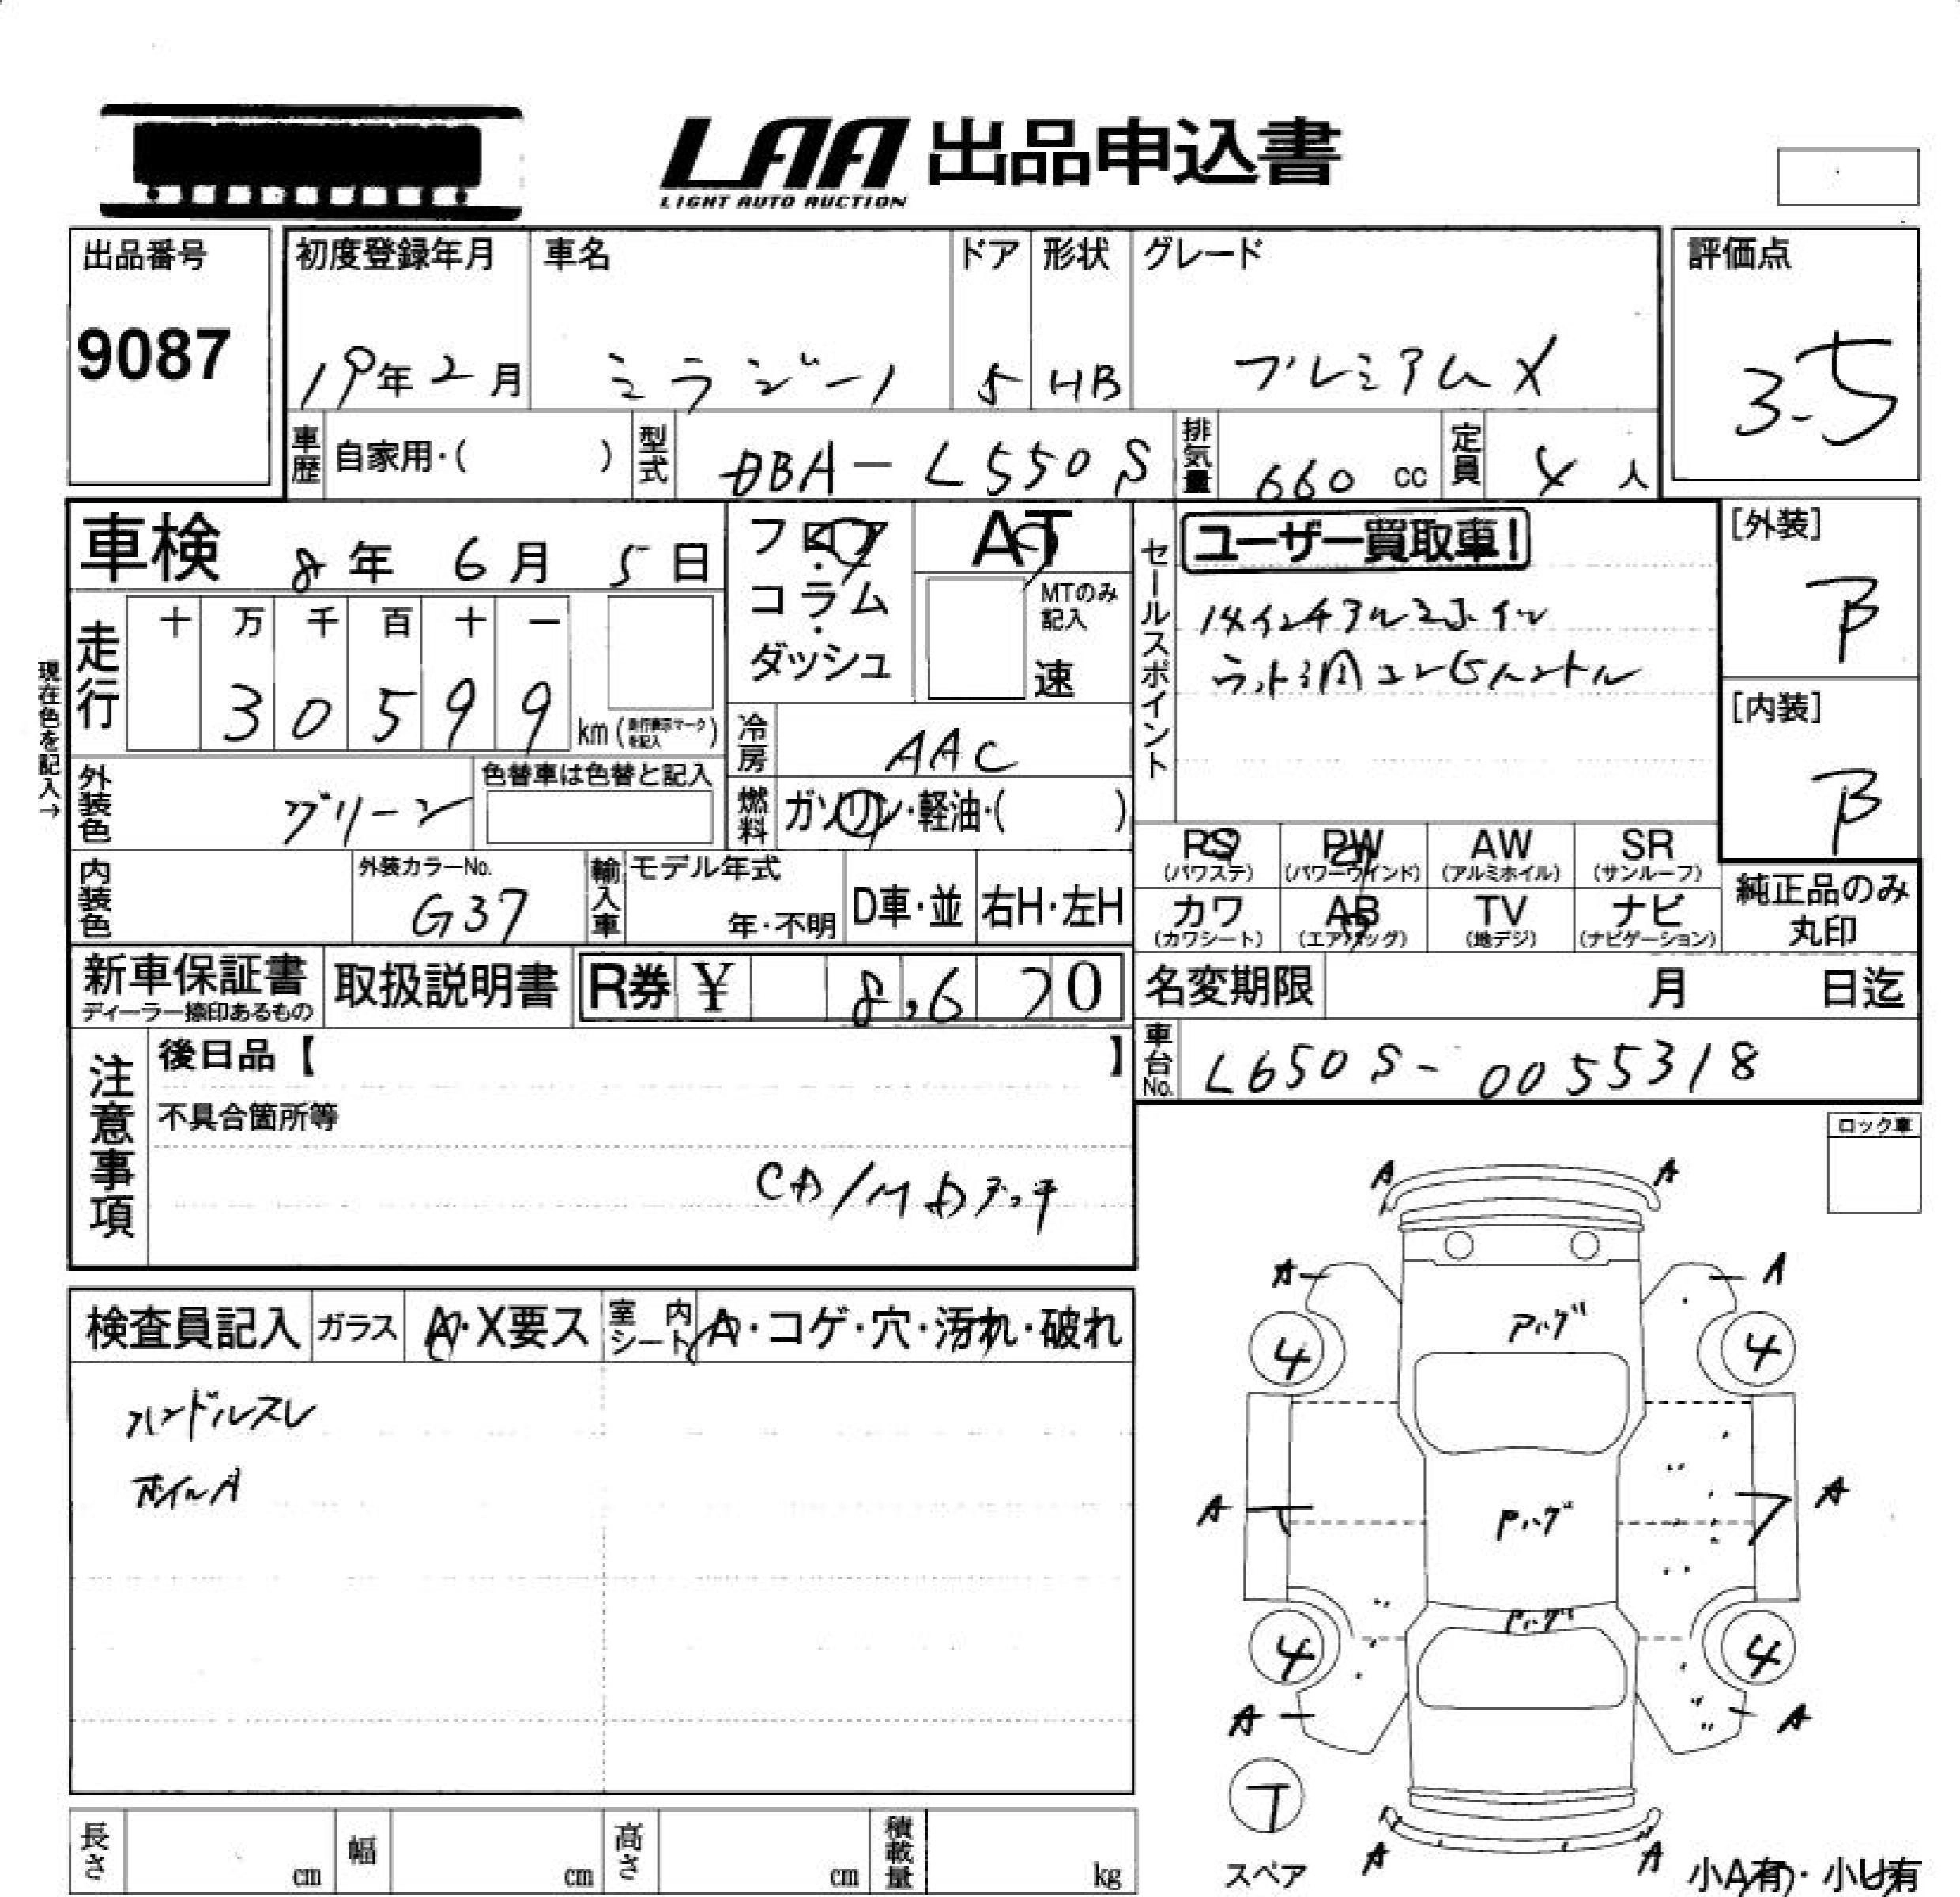 LAA 出品申込書
LIGHT AUTO AUCTION
出品番号
9087
初度登録年月
19年2月
車名
ミラジーノ
ドア
5
形状
HB
グレード
プレミアムX
評価点
3.5
車歴 自家用・( )
型式 DBA-L550S
排気量 660 cc
定員 4 人
車検 8年6月5日
フロア・コラム・ダッシュ
AT
MTのみ記入
速
現在色を記入→
走行
十 万 千 百 十 一
3 0 5 9 9 km (走行表示マークを記入)
冷房 AAC
燃料 ガソリン・軽油・( )
外装色 グリーン
色替車は色替と記入
内装色
外装カラーNo.
G37
輸入車
モデル年式
年・不明
D車・並
右H・左H
セールスポイント
ユーザー買取車!
14インチアルミホイル
ウッド調コンビハンドル
[外装]
B
[内装]
B
PS (パワステ)
PW (パワーウインド)
AW (アルミホイル)
SR (サンルーフ)
カワ (カワシート)
AB (エアバッグ)
TV (地デジ)
ナビ (ナビゲーション)
純正品のみ丸印
新車保証書
ディーラー捺印あるもの
取扱説明書
R券 ¥ 8,670
名変期限 月 日迄
車台No. L650S-0055318
注意事項
後日品【 】
不具合箇所等
CD/MDデッキ
ロック車
検査員記入
ガラス A・X要ス
室内シート A・コゲ・穴・汚れ・破れ
ハンドルスレ
ホイルA
A A
A A
Pハゲ
4 4
A A
Pハゲ
Pハゲ
4 4
A A
T
スペア
A A
小A有・小U有
長さ cm
幅 cm
高さ cm
積載量 kg